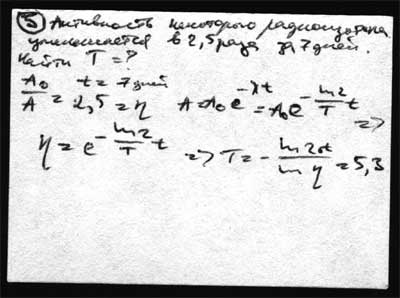 ⑤ Активность некоторого радиоизотопа
уменьшается в 2,5 раза за 7 дней.
Найти T = ?
A₀/A = 2,5 = η t = 7 дней A = A₀e^(-λt) = A₀e^(-(ln2/T)t) =>
η = e^(-(ln2/T)t) => T = - ln2·t/ln η = 5,3